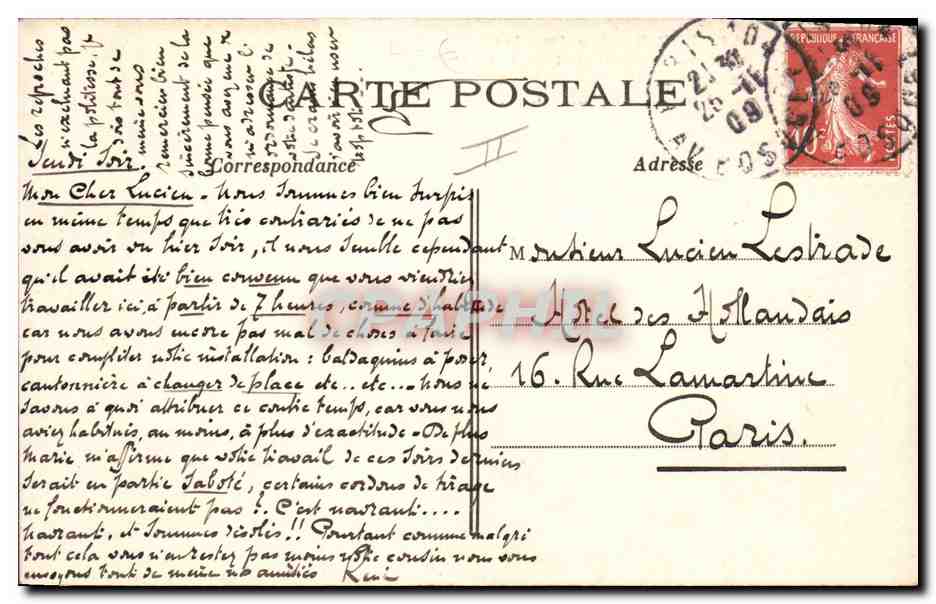 CARTE POSTALE
Correspondance
Adresse
REPUBLIQUE FRANCAISE
10
POSTES
PARIS
Jeudi Soir.
Mon Cher Lucien - Nous sommes bien surpris
en même temps que très contrariés de ne pas
vous avoir vu hier soir, il nous semble cependant
qu'il avait été bien convenu que vous viendriez
travailler ici, à partir de 7 heures, comme d'habitude
car nous avons encore pas mal de choses à faire
pour compléter notre installation : baldaquins à poser
cantonnière à changer de place etc.. etc.. - Nous ne
savons à quoi attribuer ce contre temps, car vous nous
aviez habitués, au moins, à plus d'exactitude - De plus
Marie m'affirme que votre travail de ces soirs derniers
serait en partie saboté, certains cordons de tirage
ne fonctionneraient pas ?. C'est navrant....
navrant, et sommes désolés !! Pourtant comme malgré
tout cela vous n'en restez pas moins notre cousin nous vous
envoyons tout de même nos amitiés René
Les reproches
n'excluant pas
la politesse, je
dois tout de
même vous
remercier bien
sincèrement de la
bonne pensée que
vous avez eue
m'adresser l'
ordonnance
votre
hélas
avoir
Monsieur Lucien Lestrade
Hôtel des Hollandais
16. Rue Lamartine
Paris.
II
CPAPHIL